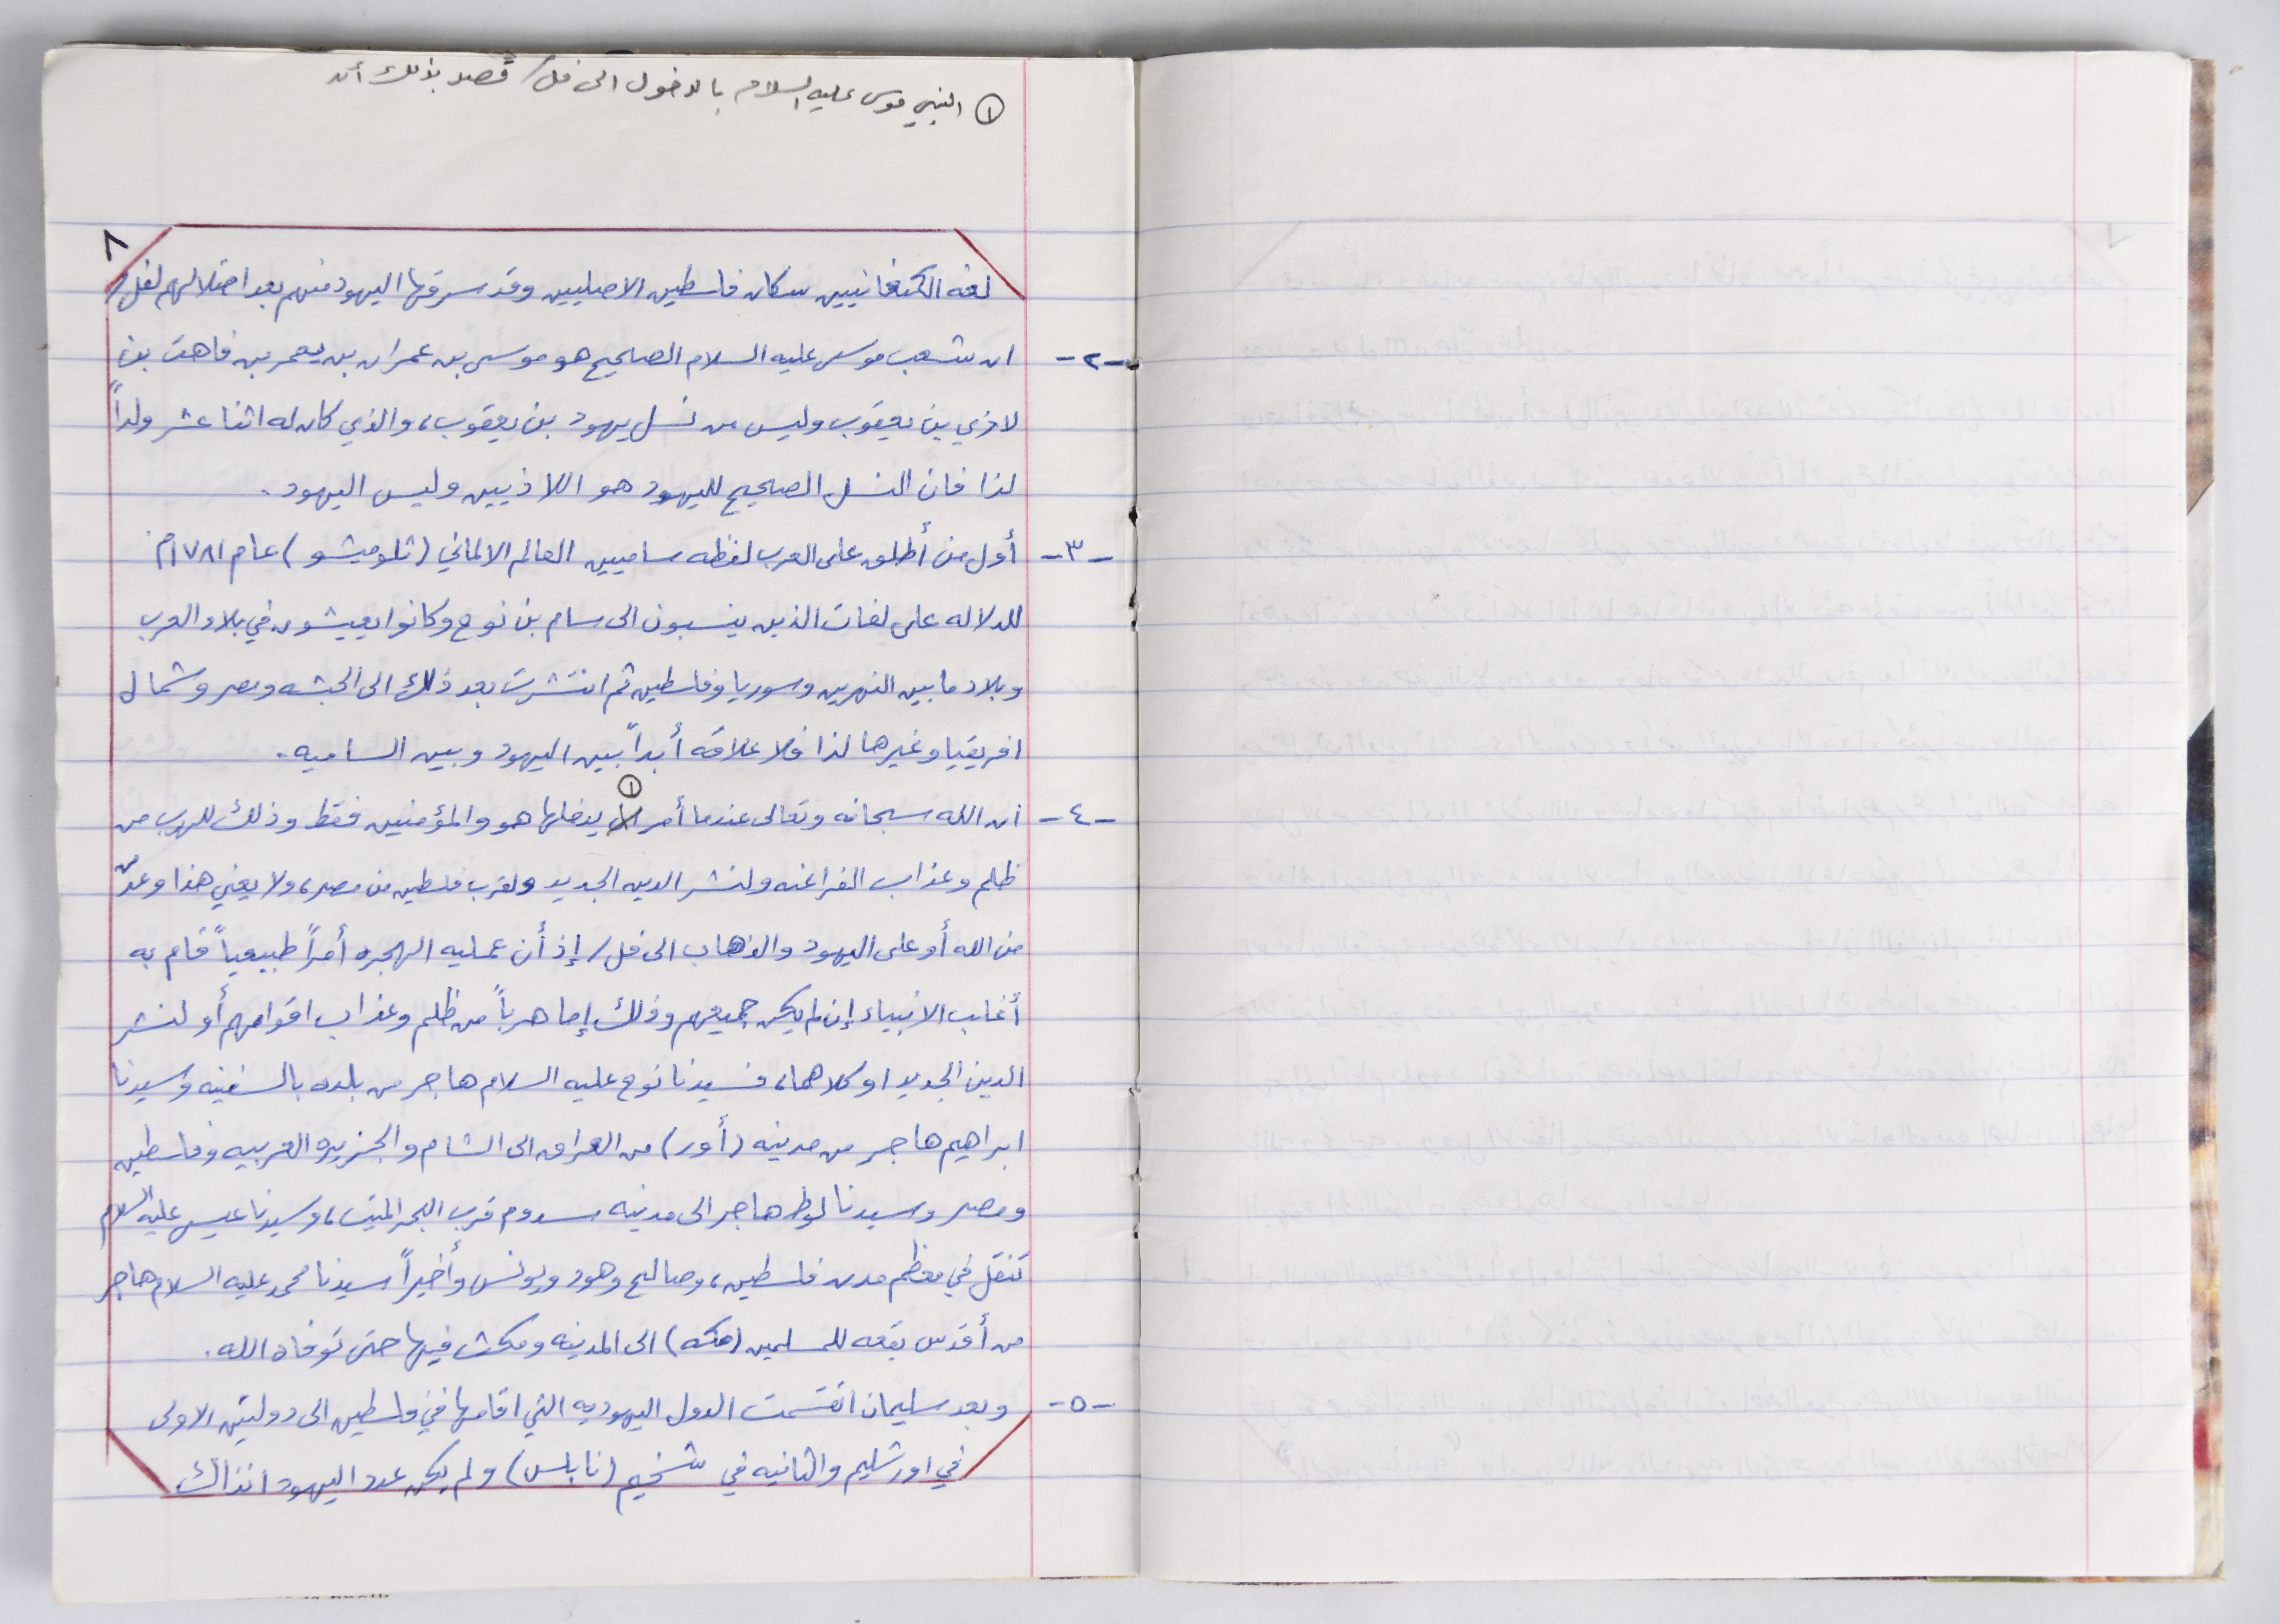 ① النبي موسى عليه السلام بالدخول الى فل/ قصد بذلك أن
٨
لغه الكنعانيين سكان فلسطين الاصليين وقد سرقها اليهود منهم بعد احتلالهم لفل/
-٢- ان شعب موسى عليه السلام الصحيح هو موسى بن عمران بن يعمر بن فاهت بن
لاوي بن يعقوب وليس من نسل يهود بن يعقوب، والذي كان له اثنا عشر ولداً
لذا فان النسل الصحيح لليهود هو اللاذيين وليس اليهود.
-٣- أول من أطلق على العرب لفظه ساميين العالم الالماني (تلوميشو) عام ١٧٨١م
للدلاله على لغات الذين ينسبون الى سام بن نوح وكانوا يعيشون في بلاد العرب
وبلاد ما بين النهرين وسوريا وفلسطين ثم انتشرت بعد ذلك الى الحبشه ومصر وشمال
افريقيا وغيرها لذا فلا علاقه أبداً بين اليهود وبين الساميه.
-٤- ان الله سبحانه وتعالى عندما أمر ① يدخلها هو والمؤمنين فقط وذلك للهرب من
ظلم وعذاب الفراعنه ولنشر الدين الجديد ولقرب فلسطين من مصر، ولا يعني هذا وعدٌ من
من الله أو على اليهود والذهاب الى فل/ إذ أن عمليه الهجره أمراً طبيعياً قام به
أغلب الانبياء إن لم يكن جميعهم وذلك إما هرباً من ظلم وعذاب اقوامهم أو لنشر
الدين الجديد او كلاهما، فسيدنا نوح عليه السلام هاجر من بلده بالسفينه وسيدنا
ابراهيم هاجر من مدينه (أور) من العراق الى الشام والجزيره العربيه وفلسطين
ومصر وسيدنا لوط هاجر الى مدينه سدوم قرب البحر الميت، وسيدنا عيسى عليه السلام
تنقل في معظم مدن فلسطين، وصالح وهود ويونس وأخيراً سيدنا محمد عليه السلام هاجر
من أقدس بقعه للمسلمين (مكه) الى المدينه ومكث فيها حتى توفاه الله.
-٥- وبعد سليمان انقسمت الدول اليهوديه التي اقامها في فلسطين الى دولتين الاولى
في اورشليم والثانيه في شخيم (نابلس) ولم يكن عدد اليهود انذاك